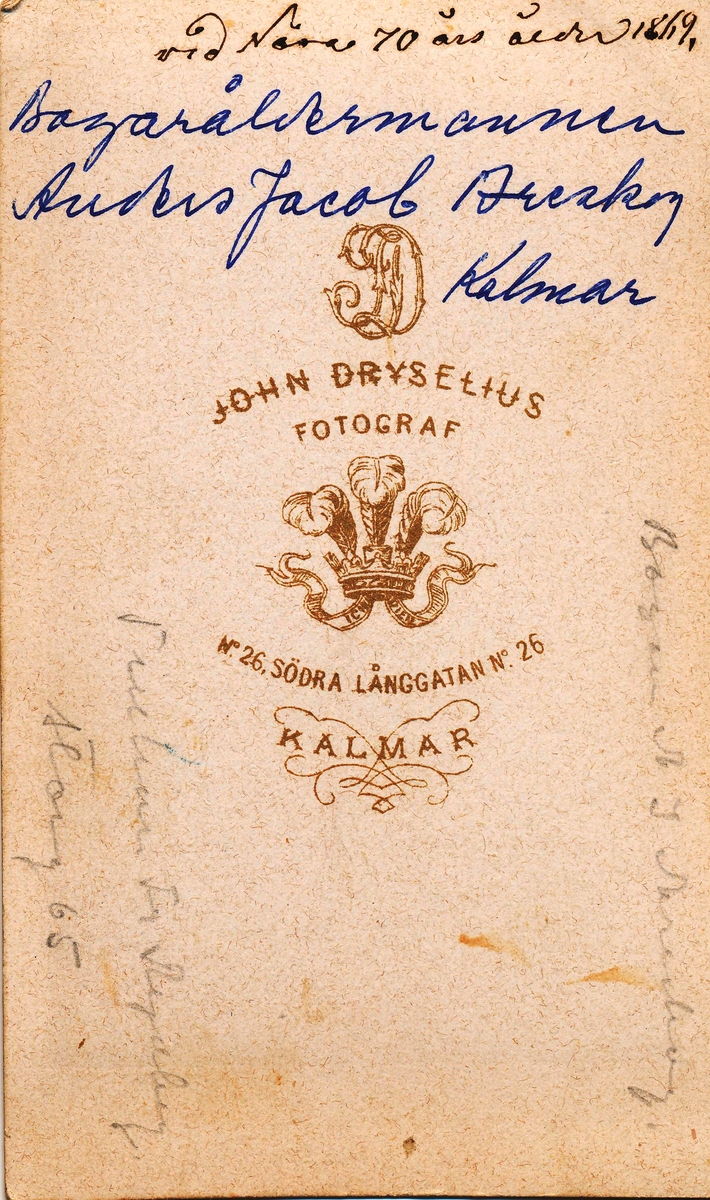 vid Nära 70 års ålder 1869,
Bagaråldermannen
Anders Jacob Areskog
Kalmar
JD
JOHN DRYSELIUS
FOTOGRAF
ICH DIEN
Nº 26, SÖDRA LÅNGGATAN Nº. 26
KALMAR
A J Areskog.
65